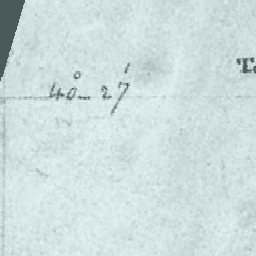 40° - 27'